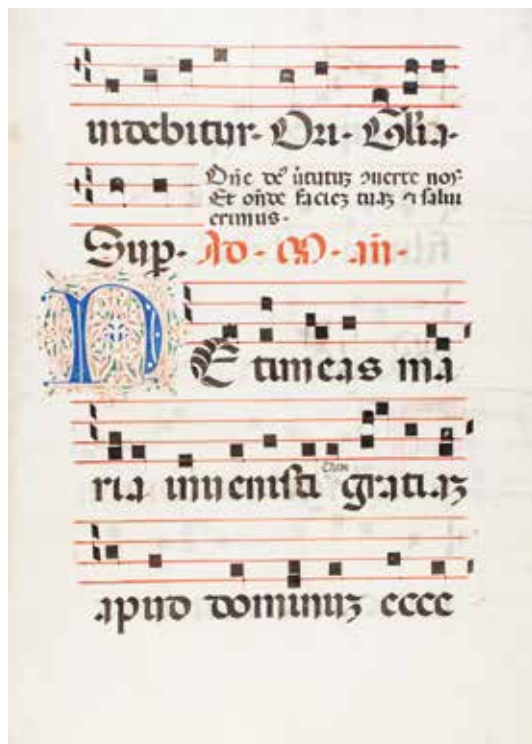 indebitur- Ori- Glia-
Dñe de⁹ v̄tutuȝ ↄuerte nos
Et oñde facieȝ tuaȝ ⁊ salui
erimus-
Sup- Ad- M- añ-
NE timeas ma
ria inuenisti gratiaȝ
apud dominuȝ ecce